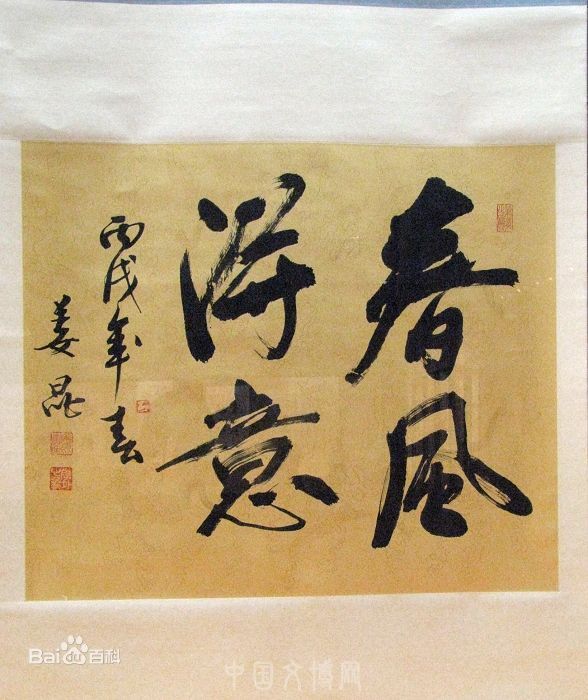 春風
得意
丙戌年春
姜昆
Baidu百科
中国文博网